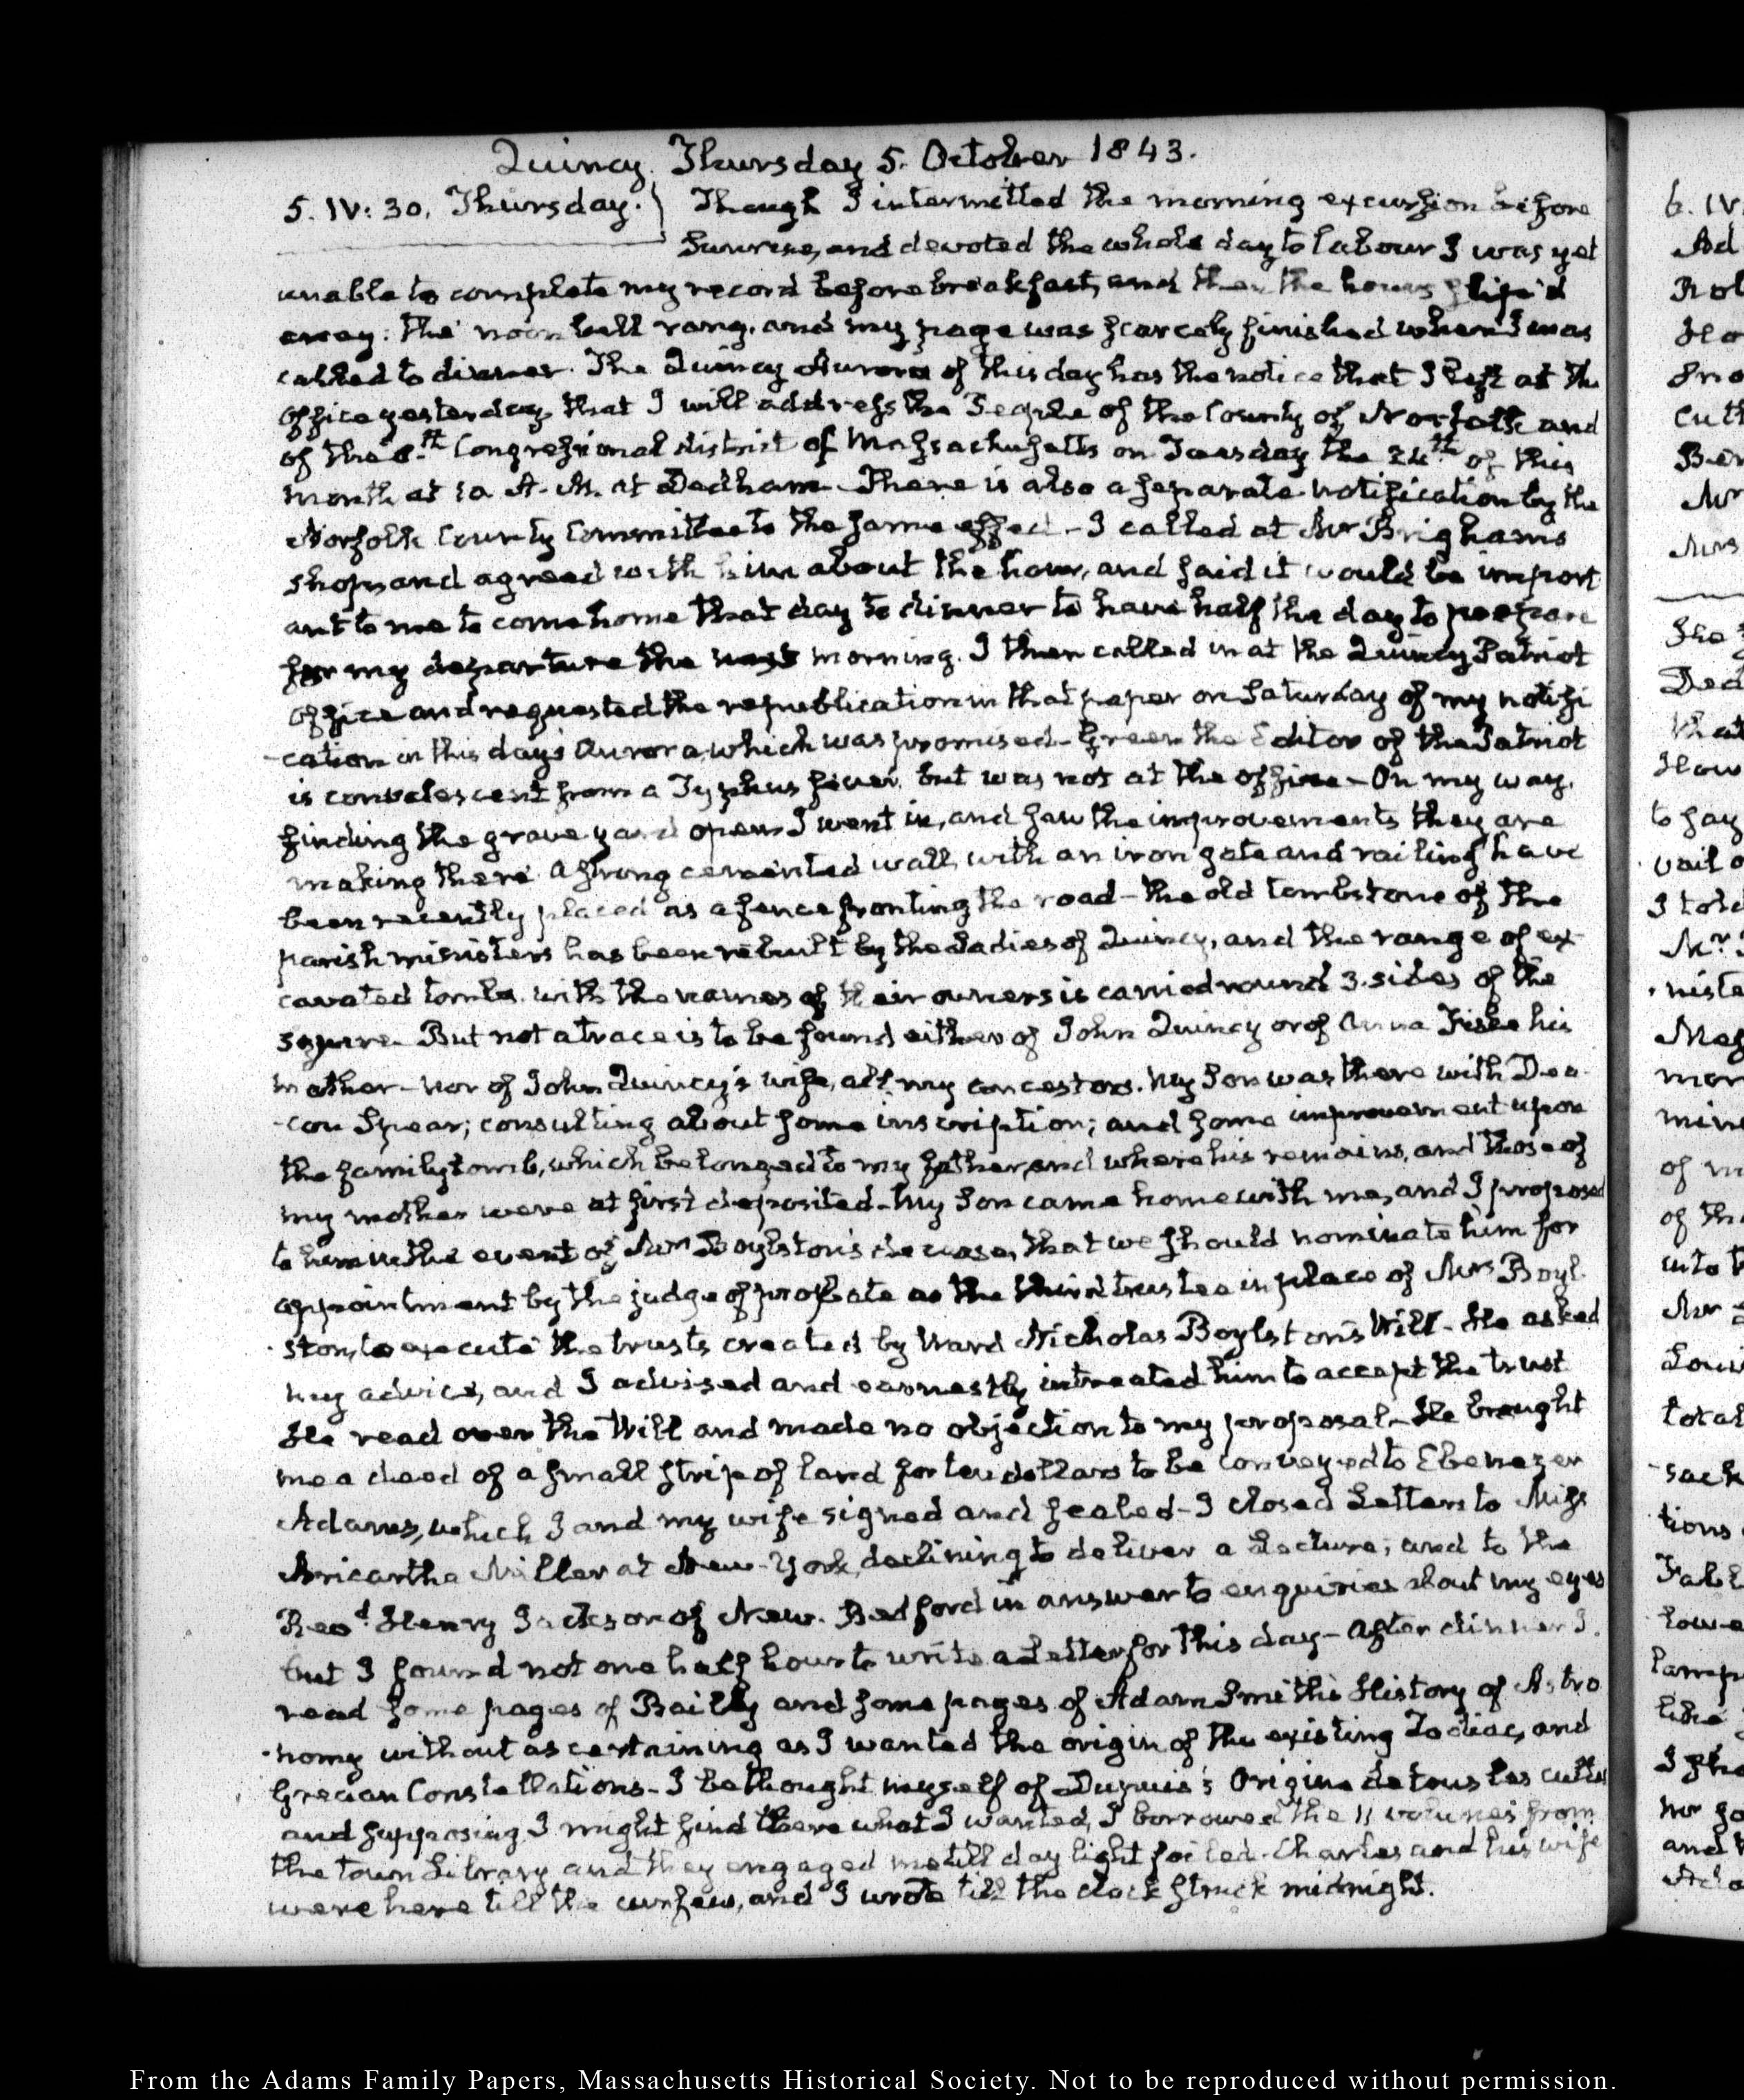 Quincy. Thursday 5. October 1843.
5. IV: 30. Thursday. Though I intermitted the morning excursion before
Sunrise, and devoted the whole day to labour I was yet
unable to complete my record before breakfast, and then the hours slip'd
away: the noon bell rang, and my page was scarcely finished when I was
called to dinner. The Quincy Aurora of this day has the notice that I left at the
Office yesterday, that I will address the People of the County of Norfolk and
of the 8.th Congressional district of Massachusetts on Tuesday the 24th of this
month at 10 A.M. at Dedham. There is also a separate notification by the
Norfolk County Committee to the same effect - I called at Mr Brighams
shop, and agreed with him about the hour, and said it would be import
ant to me to come home that day to dinner to have half the day to prepare
for my departure the next morning. I then called in at the Quincy Patriot
office and requested the republication in that paper on Saturday of my notifi
-cation in this day's Aurora, which was promised - Green the Editor of the Patriot
is convalescent from a Typhus fever, but was not at the office - On my way,
finding the grave yard open I went in, and saw the improvements they are
making there. A strong cemented wall with an iron gate and railing have
been recently placed as a fence fronting the road - the old tombstone of the
parish ministers has been rebuilt by the Ladies of Quincy, and the range of ex-
cavated tombs with the names of their owners is carried round 3. sides of the
square. But not a trace is to be found either of John Quincy or of Anna Fiske his
mother - nor of John Quincy's wife, all my ancestors. My Son was there with Dea-
-con Spear; consulting about some inscription; and some improvement upon
the family tomb, which belonged to my father, and where his remains, and those of
my mother were at first deposited - My Son came home with me, and I proposed
to him in the event of Mrs Boylston's decease, that we should nominate him for
appointment by the judge of probate as the third trustee in place of Mrs Boyl-
-ston, to execute the trusts created by Ward Nicholas Boylston's Will - He asked
my advice, and I advised and earnestly intreated him to accept the trust
He read over the Will and made no objection to my proposal - He brought
me a deed of a small strip of land for ten dollars to be conveyed to Ebenezer
Adams, which I and my wife signed and sealed - I closed Letters to Miss
Miller at New-York, declining to deliver a Lecture; and to the
Revd Henry Jackson of New-Bedford in answer to enquiries about my eyes
but I found not one half hour to write a Letter for this day - After dinner I
read some pages of Bailly and some pages of Adam Smith's History of Astro
-nomy without ascertaining as I wanted the origin of the existing Zodiac, and
Grecian Constellations - I bethought myself of Dupuis's Origine de tous les cultes
and supposing I might find there what I wanted, I borrowed the 11 volumes from
the town Library and they engaged me till day light failed. Charles and his wife
were here till the curfew, and I wrote till the clock struck midnight.
From the Adams Family Papers, Massachusetts Historical Society. Not to be reproduced without permission.